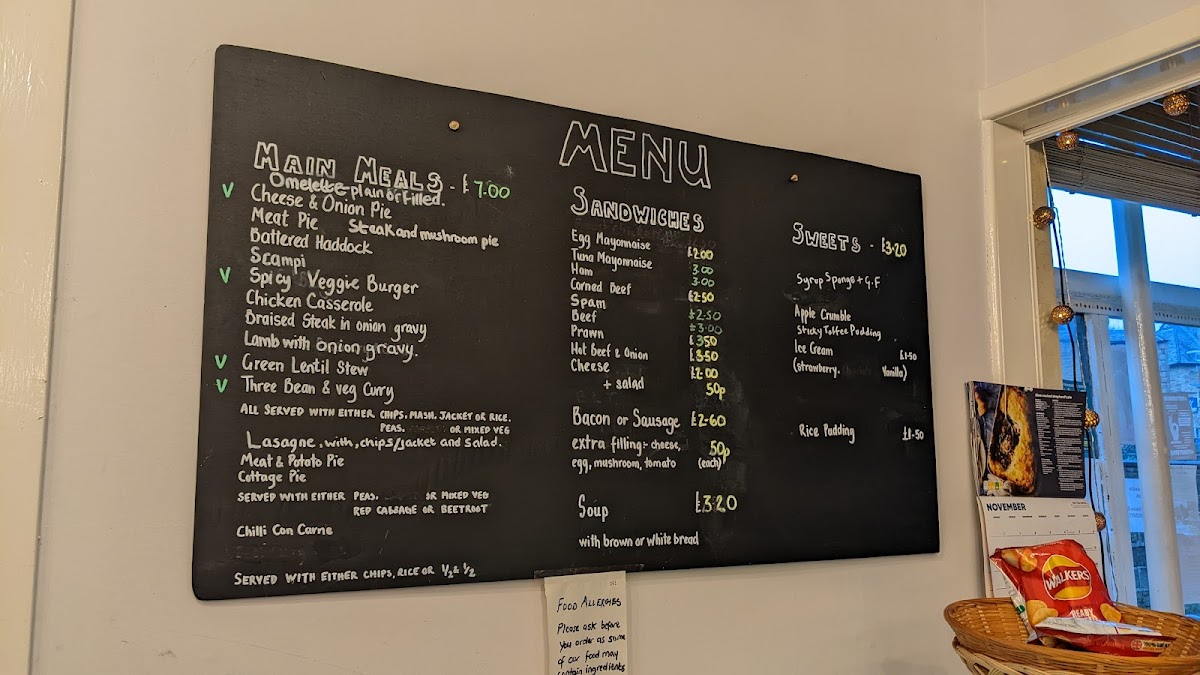 MENU
MAIN MEALS - £7.00
Omelette - plain or filled.
V Cheese & Onion Pie
Meat Pie Steak and mushroom pie
Battered Haddock
Scampi
V Spicy Veggie Burger
Chicken Casserole
Braised Steak in onion gravy
Lamb with onion gravy.
V Green Lentil Stew
V Three Bean & veg Curry
ALL SERVED WITH EITHER CHIPS, MASH, JACKET OR RICE.
PEAS, OR MIXED VEG
Lasagne, with, chips/jacket and salad.
Meat & Potato Pie
Cottage Pie
SERVED WITH EITHER PEAS, OR MIXED VEG
RED CABBAGE OR BEETROOT
Chilli Con Carne
SERVED WITH EITHER CHIPS, RICE OR 1/2 & 1/2
SANDWICHES
Egg Mayonnaise £2.00
Tuna Mayonnaise 3.00
Ham 3.00
Corned Beef £2.50
Spam £2.50
Beef £3.00
Prawn £3.50
Hot Beef & Onion £3.50
Cheese £2.00
+ salad 50p
Bacon or Sausage £2-60
extra filling:- cheese, 50p
egg, mushroom, tomato (each)
Soup £3.20
with brown or white bread
SWEETS - £3.20
Syrup Sponge + G.F
Apple Crumble
Sticky Toffee Pudding
Ice Cream £1-50
(strawberry, Vanilla)
Rice Pudding £1-50
FOOD ALLERGIES
Please ask before
you order as some
of our food may
contain ingredients
NOVEMBER
WALKERS
READY